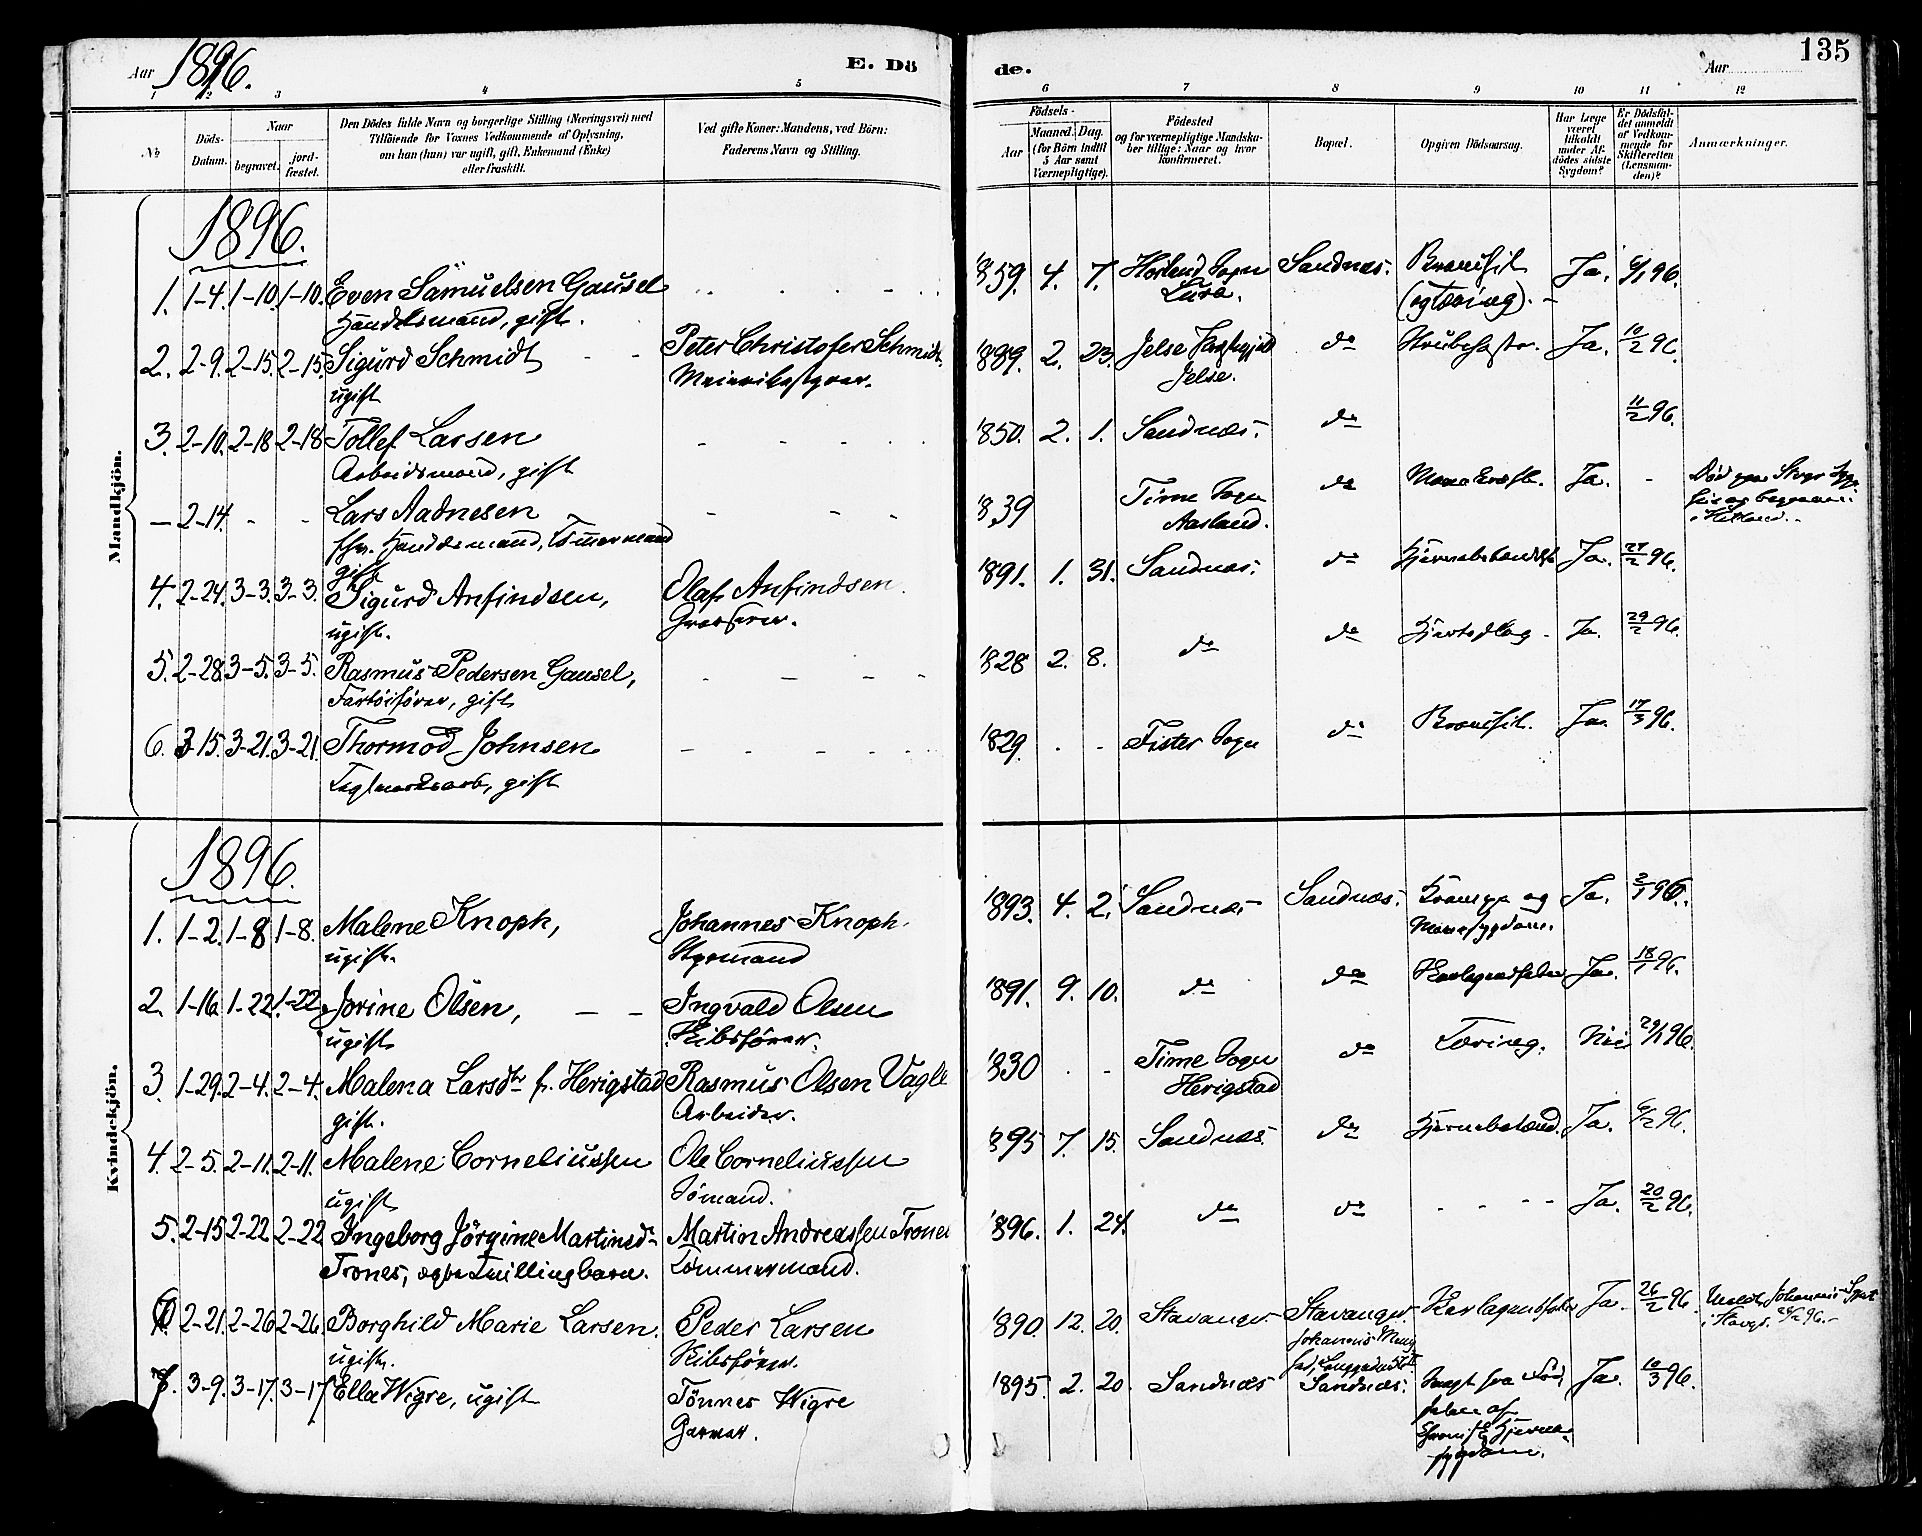 Aar 1896.
E. Dö
de.
Aar
135
1 2 3 4 5 6 7 8 9 10 11 12
№
Döds-
Datum.
Naar
begravet.
jord-
fæstet.
Den Dödes fulde Navn og borgerlige Stilling (Næringsvei) med
Tilföiende for Voxnes Vedkommende af Oplysning,
om han (hun) var ugift, gift, Enkemand (Enke)
eller fraskilt.
Ved gifte Koner: Mandens, ved Börn:
Faderens Navn og Stilling.
Födsels-
Aar
Maaned.
Dag.
(for Börn indtil
5 Aar samt
Værnepligtige).
Födested
og for værnepligtige Mandska-
ber tillige: Naar og hvor
konfirmeret.
Bopæl.
Opgiven Dödsaarsag.
Har Læge
været
tilkaldt
under Af-
dödes sidste
Sygdom?
Er Dödsfal-
det anmeldt
af Vedkom-
mende for
Skifteretten
(Lensman-
den)?
Anmærkninger.
Mandkjön.
1896.
1. 1-4. 1-10. 1-10. Even Samuelsen Gausel 1859. 4. 7. Høiland Sogn Sandnæs. Ja. 6/1 96.
Handelsmand, gift. Lura. (og Tæring).
2. 2-9. 2-15. 2-15. Sigurd Schmidt Peter Christofer Schmidt 1889. 2. 23. Jelse do Ja. 10/2 96.
ugift Jelse.
3. 2-10. 2-18 2-18 Tollef Larsen 1850. 2. 1. Sandnæs. do 11/2 96.
Arbeidsmand, gift
- 2-14. - - Lars Aadnesen 1839 Time Sogn do Ja. - Død paa
Handelsmand, Tømmermand Aasland.
gift
4. 2-24. 3-3. 3-3. Sigurd Anfindsen, Olaf Anfindsen. 1891. 1. 31. Sandnæs. do Ja. 27/2 96.
ugift.
5. 2-28. 3-5. 3-5. Rasmus Pedersen Gausel, 1828 2. 8. do do Hjerteslag. Ja. 29/2 96.
Fartøifører, gift
6. 3-15. 3-21. 3-21. Thormod Johnsen 1829. Fister Sogn do Ja. 17/3 96.
Teglværksarb, gift
Kvindekjön.
1896.
1. 1-2. 1-8 1-8. Malene Knoph, Johannes Knoph. 1893. 4. 2. Sandnæs Sandnæs. og Ja. 3/1 96.
ugift. Styrmand
2. 1-16. 1-22. 1-22. Jorine Olsen, Ingvald Olsen 1891. 9. 10. do do Ja. 18/1 96.
ugift Skibsfører.
3. 1-29. 2-4. 2-4. Malena Larsdtr f. Herigstad Rasmus Olsen Vagle 1830 Time Sogn do Tæring. Nei 29/1 96.
gift. Arbeider. Herigstad
4. 2-5. 2-11. 2-11. Malene Corneliussen Ole Corneliussen 1895 7. 15. Sandnæs do Ja. 6/2 96.
ugift Sømand.
5. 2-15 2-22 2-22 Ingeborg Jörgine Martinsd. Martin Andreassen Trones 1896. 1. 24. do do - - - Ja. 20/2 96.
Trones, Tvillingbarn. Tømmermand.
6. 2-21. 2-26 2-26. Borghild Marie Larsen. Peder Larsen 1890. 12. 20. Stavanger Stavanger. Ja. 26/2 96.
ugift. Skibsfører.
7. 3-9. 3-17. 3-17. Ella Wigre, ugift Tönnes Wigre 1895. 2. 20. Sandnæs Sandnæs. Svagt fra Ja. 10/3 96.
Garver.